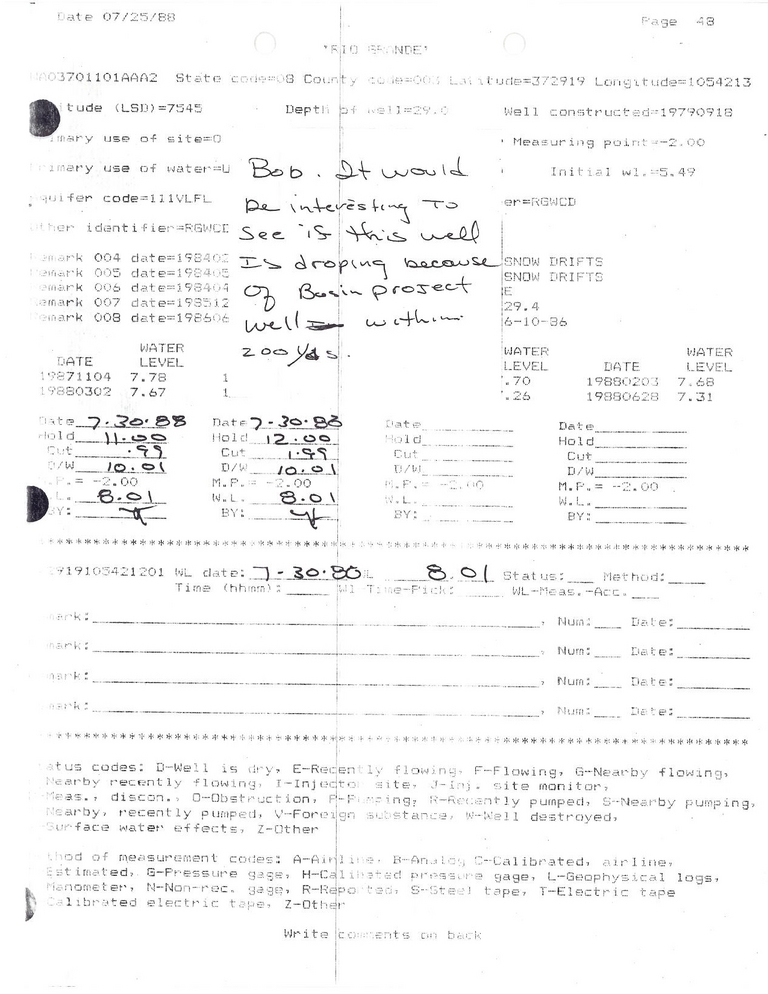 Date 07/25/88 Page 48
'RIO GRANDE'
NA03701101AAA2 State code=08 County code=003 Latitude=372919 Longitude=1054213
titude (LSD)=7545 Depth of well=29.0 Well constructed=19790918
imary use of site=O Measuring point=-2.00
rimary use of water=U Initial wl.=5.49
quifer code=111VLFL er=RGWCD
ther identifier=RGWCD
Bob. It would
be interesting To
see if this well
Is droping because
of Basin project
well within
200 yds.
emark 004 date=198402 SNOW DRIFTS
emark 005 date=198405 SNOW DRIFTS
emark 006 date=198404 E
emark 007 date=198512 29.4
emark 008 date=198606 6-10-86
WATER WATER WATER
DATE LEVEL LEVEL DATE LEVEL
19871104 7.78 1 .70 19880203 7.68
19880302 7.67 1 .26 19880628 7.31
Date 7-30-88 Date 7-30-88 Date Date
Hold 11.00 Hold 12.00 Hold Hold
Cut .99 Cut 1.99 Cut Cut
D/W 10.01 D/W 10.01 D/W D/W
M.P.= -2.00 M.P.= -2.00 M.P.= -2.00 M.P.= -2.00
W.L. 8.01 W.L. 8.01 W.L. W.L.
BY: BY: BY: BY:
**********************************************************************
2919105421201 WL date: 7-30-88 8.01 Status: Method:
Time (hhmm): Wl Time-Pick: WL-Meas.-Acc.
mark: , Num: Date:
mark: , Num: Date:
mark: , Num: Date:
mark: , Num: Date:
**********************************************************************
atus codes: D-Well is dry, E-Recently flowing, F-Flowing, G-Nearby flowing,
Nearby recently flowing, I-Injector site, J-Inj. site monitor,
Meas., discon., O-Obstruction, P-Pumping, R-Recently pumped, S-Nearby pumping,
Nearby, recently pumped, V-Foreign substance, W-Well destroyed,
Surface water effects, Z-Other
thod of measurement codes: A-Airline, B-Analog C-Calibrated, airline,
Estimated, G-Pressure gage, H-Calibrated pressure gage, L-Geophysical logs,
Manometer, N-Non-rec. gage, R-Reported, S-Steel tape, T-Electric tape
Calibrated electric tape, Z-Other
Write comments on back